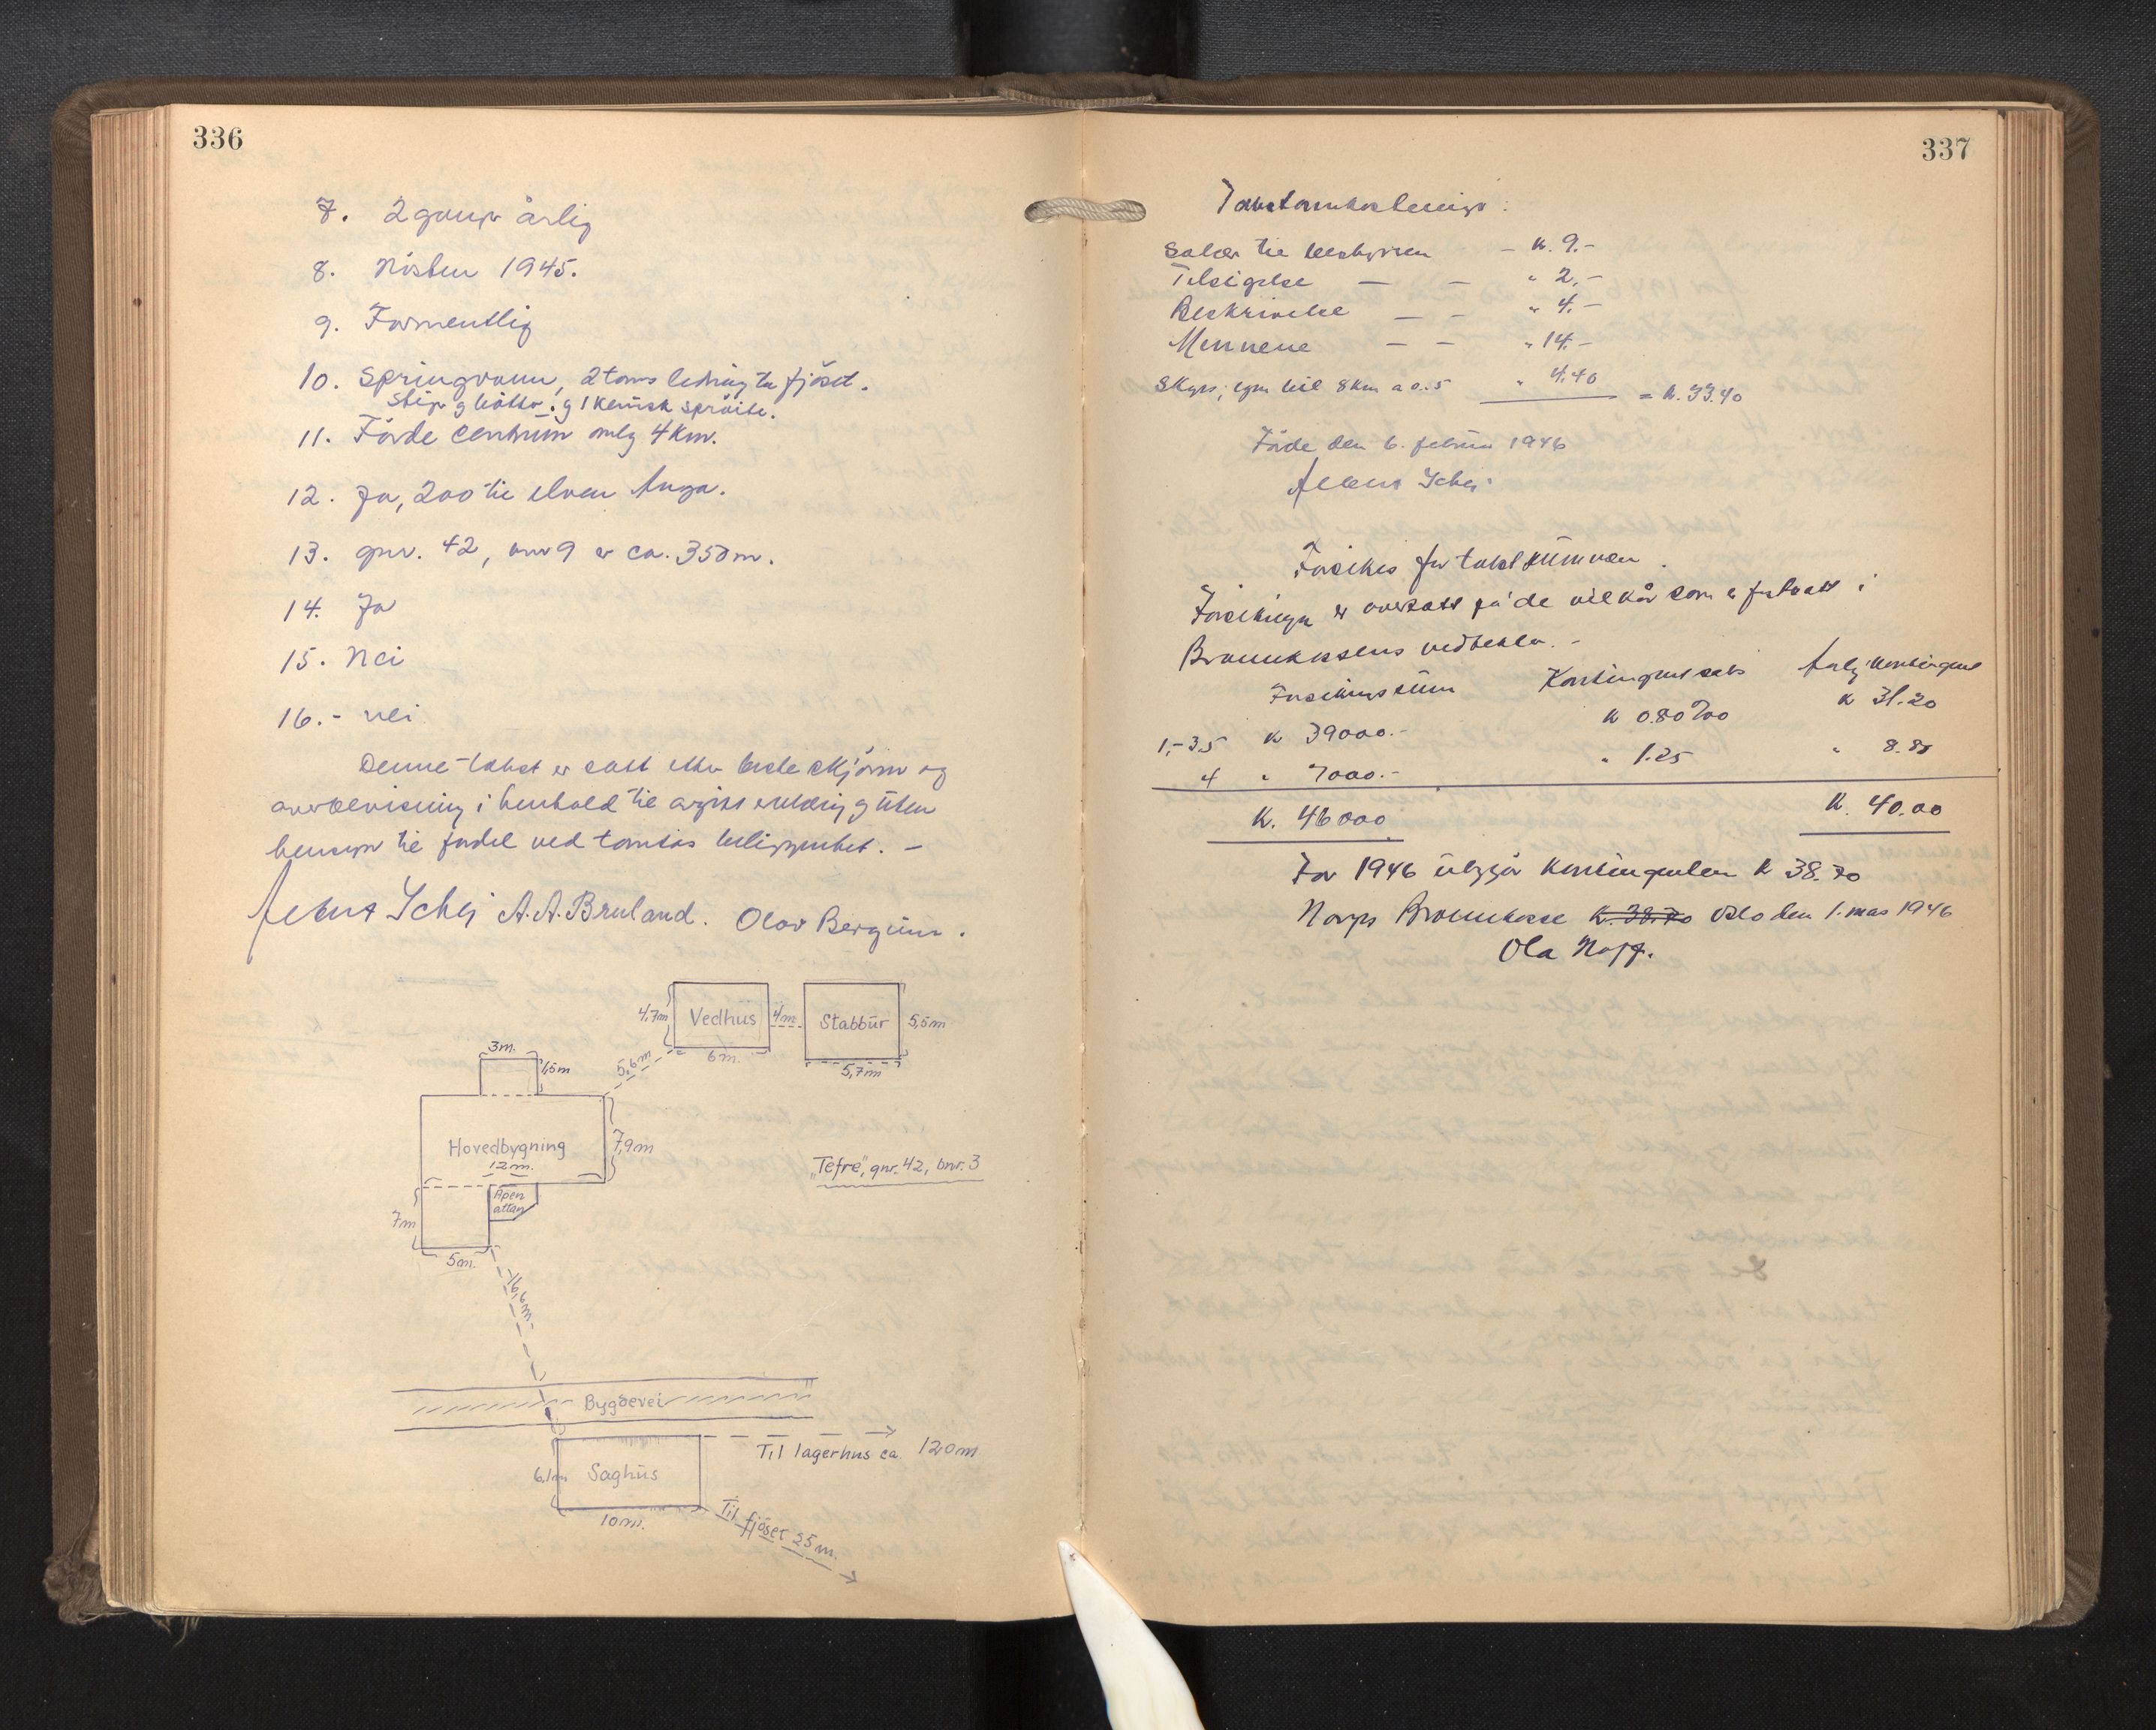 336
7. 2 ganger årlig
8. Hösten 1945.
9. Formentlig
10. Springvann, 2 toms ledning til fjöset.
Stiger og bötter. og 1 kemisk spröite.
11. Förde centrum omlag 4 km.
12. Ja, 200 til elven Anga.
13. gnr. 42, bnr 9 er ca. 350 m.
14. Ja
15. Nei
16. - nei
Denne takst er satt etter beste skjönn og
overbevisning i henhold til avgitt erklæring og uten
hensyn til fordel ved tomtas beliggenhet. -
Schei A. A. Bruland. Olav Bergum.
4,7m Vedhus 4m Stabbur 5,5m
6m. 5,7m
5,6m
3m. 1,5m
Hovedbygning 7,9m
12m.
Åpen
altan
7m
5m.
"Tefre", gnr. 42, bnr. 3
16,6m.
Bygdevei
Til lagerhus ca 120m
6,1m Saghus
10m.
Til fjöset 25m.
337
Takstomkostninger:
Salær til bestyreren - k. 9.-
Tilsigelse — - " 2,-
Beskrivelse — - " 4.-
Mennene — - " 14.-
Skyss, egen bil 8 km a 0.55 " 4.40 = k. 33.40
Förde den 6. februar 1946
Schei
Forsikres for takstsummen.
Forsikringen er overtatt på de vilkår som er fastsatt i
Brannkassens vedtekter. -
Forsikringssum Kontingentsats Årlig kontingent
1,-3,5 k 39000.- k 0.80 ‰ k 31.20
4 " 7000.- " 1.25 " 8.80
k. 46000 k. 40.00
For 1946 utgjör kontingenten k 38.70
Norges Brannkasse k. 38.70 Oslo den 1. mars 1946
Ola Hoff.